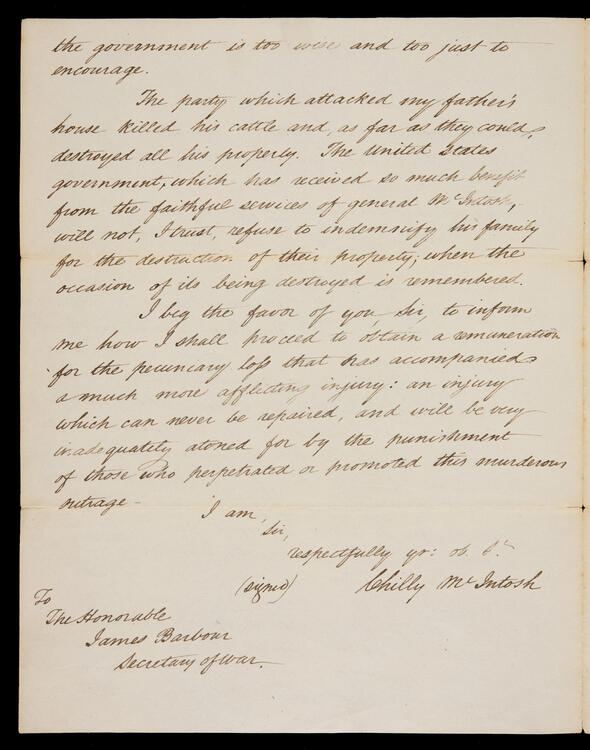 the government is too wise and too just to
encourage.
The party which attacked my father's
house killed his cattle and, as far as they could,
destroyed all his property. The United States
government, which has received so much benefit
from the faithful services of general McIntosh,
will not, I trust, refuse to indemnify his family
for the destruction of their property, when the
occasion of its being destroyed is remembered.
I beg the favor of you, Sir, to inform
me how I shall proceed to obtain a remuneration
for the pecuniary loss that has accompanied
a much more afflicting injury: an injury
which can never be repaired, and will be very
inadequately atoned for by the punishment
of those who perpetrated or promoted this murderous
outrage -
I am,
Sir,
respectfully yr: ob. St.
(signed) Chilly McIntosh
To
The Honorable
James Barbour
Secretary of War.